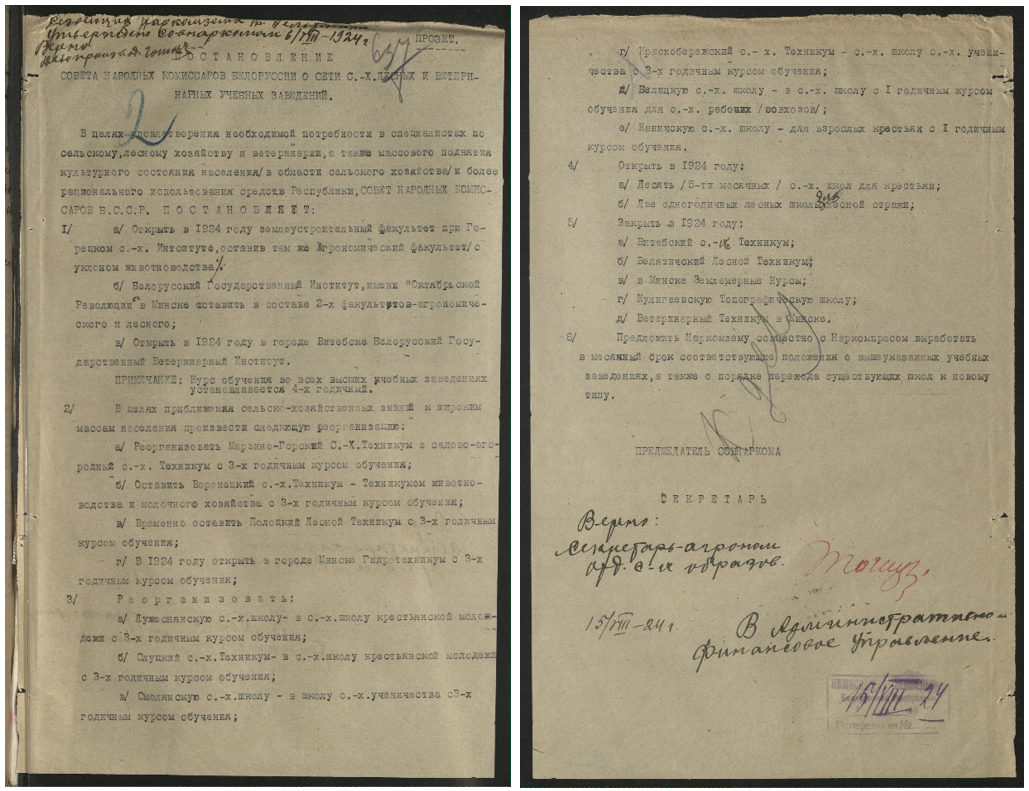 Утверждено Совнаркомом 6/VIII-1924 г.
Верно
ПРОЭКТ.
ПОСТАНОВЛЕНИЕ
СОВЕТА НАРОДНЫХ КОМИССАРОВ БЕЛОРУССИИ О СЕТИ С.-Х.ЛЕСНЫХ И ВЕТЕРИ-
НАРНЫХ УЧЕБНЫХ ЗАВЕДЕНИЙ.
2
В целях удовлетворения необходимой потребности в специалистах по
сельскому,лесному хозяйству и ветеринарии,а также массового поднятия
культурного состояния населения/в области сельского хозяйства/и более
рационального использования средств Республики,СОВЕТ НАРОДНЫХ КОМИС-
САРОВ Б.С.С.Р. П О С Т А Н О В Л Я Е Т:
1/ а/ Открыть в 1924 году землеустроительный факультет при Го-
рецком с.-х. Интституте,оставив там же Агрономический факультет/с
уклоном животноводства/.
б/ Белорусский Государственный Институт,имени "Октябрьской
Революции" в Минске оставить в составе 2-х факультетов-агрономиче-
ского и лесного;
в/ Открыть в 1924 году в городе Витебске Белорусский Госу-
дарственный Ветеринарный Институт.
ПРИМЕЧАНИЕ: Курс обучения во всех высших учебных заведениях
устанавливается 4-х годичный.
2/ В целях приближения сельско-хозяйственных знаний к широким
массам населения произвести следующую реорганизацию:
а/ Реорганизовать Марьино-Горский С.-Х.Техникум в садово-ого-
родный с.-х. Техникум с 3-х годичным курсом обучения;
б/ Оставить Воронецкий с.-х.Техникум - Техникумом животно-
водства и молочного хозяйства с 3-х годичным курсом обучения;
в/ Временно оставить Полоцкий Лесной Техникум с 3-х годичным
курсом обучения;
г/ В 1924 году открыть в городе Минске Гидротехникум с 3-х
годичным курсом обучения;
3/ Р е о р г а н и з о в а т ь:
а/ Лужеснянскую с.-х.школу- в с.-х.школу крестьянской молож-
лежи с 3-х годичным курсом обучения;
б/ Слуцкий с.-х.Техникум- в с.-х.школу крестьянской молодежи
с 3-х годичным курсом обучения;
в/ Смолянскую с.-х.школу - в школу с.-х.ученичества с3-х
годичным курсом обучения;
г/ Краснобережский с.-х. Техникум - с.-х. школу с.-х. учени-
чества с 3-х годичным курсом обучения;
д/ Белицкую с.-х. школу - в с.-х. школу с 1 годичным курсом
обучения для с.-х. рабочих /совхозов/;
е/ Каничскую с.-х. школу - для взрослых крестьян с 1 годичным
курсом обучения.
4/ Открыть в 1924 году:
а/ Десять /5-ти месячных / с.-х. школ для крестьян;
б/ Две одногодичных лесных школы для лесной стражи;
5/ Закрыть в 1924 году:
а/ Витебский с.-х. Техникум;
б/ Велятичский Лесной Техникум;
в/ в Минске Землемерные Курсы;
г/ Кулигаевскую Топографическую школу;
д/ Ветеринарный Техникум в Минске.
6/ Предложить Наркомзему совместно с Наркомпросом выработать
в месячный срок соответствующие положения о вышеуказанных учебных
заведениях,а также о порядке перехода существующих школ к новому
типу.
ПРЕДСЕДАТЕЛЬ СОВНАРКОМА
С Е К Р Е Т А Р Ь
Верно:
Секретарь-агроном
отд. с-х образов.
15/VIII-24 г
В Административно-
финансовое Управление.
15/VIII 24